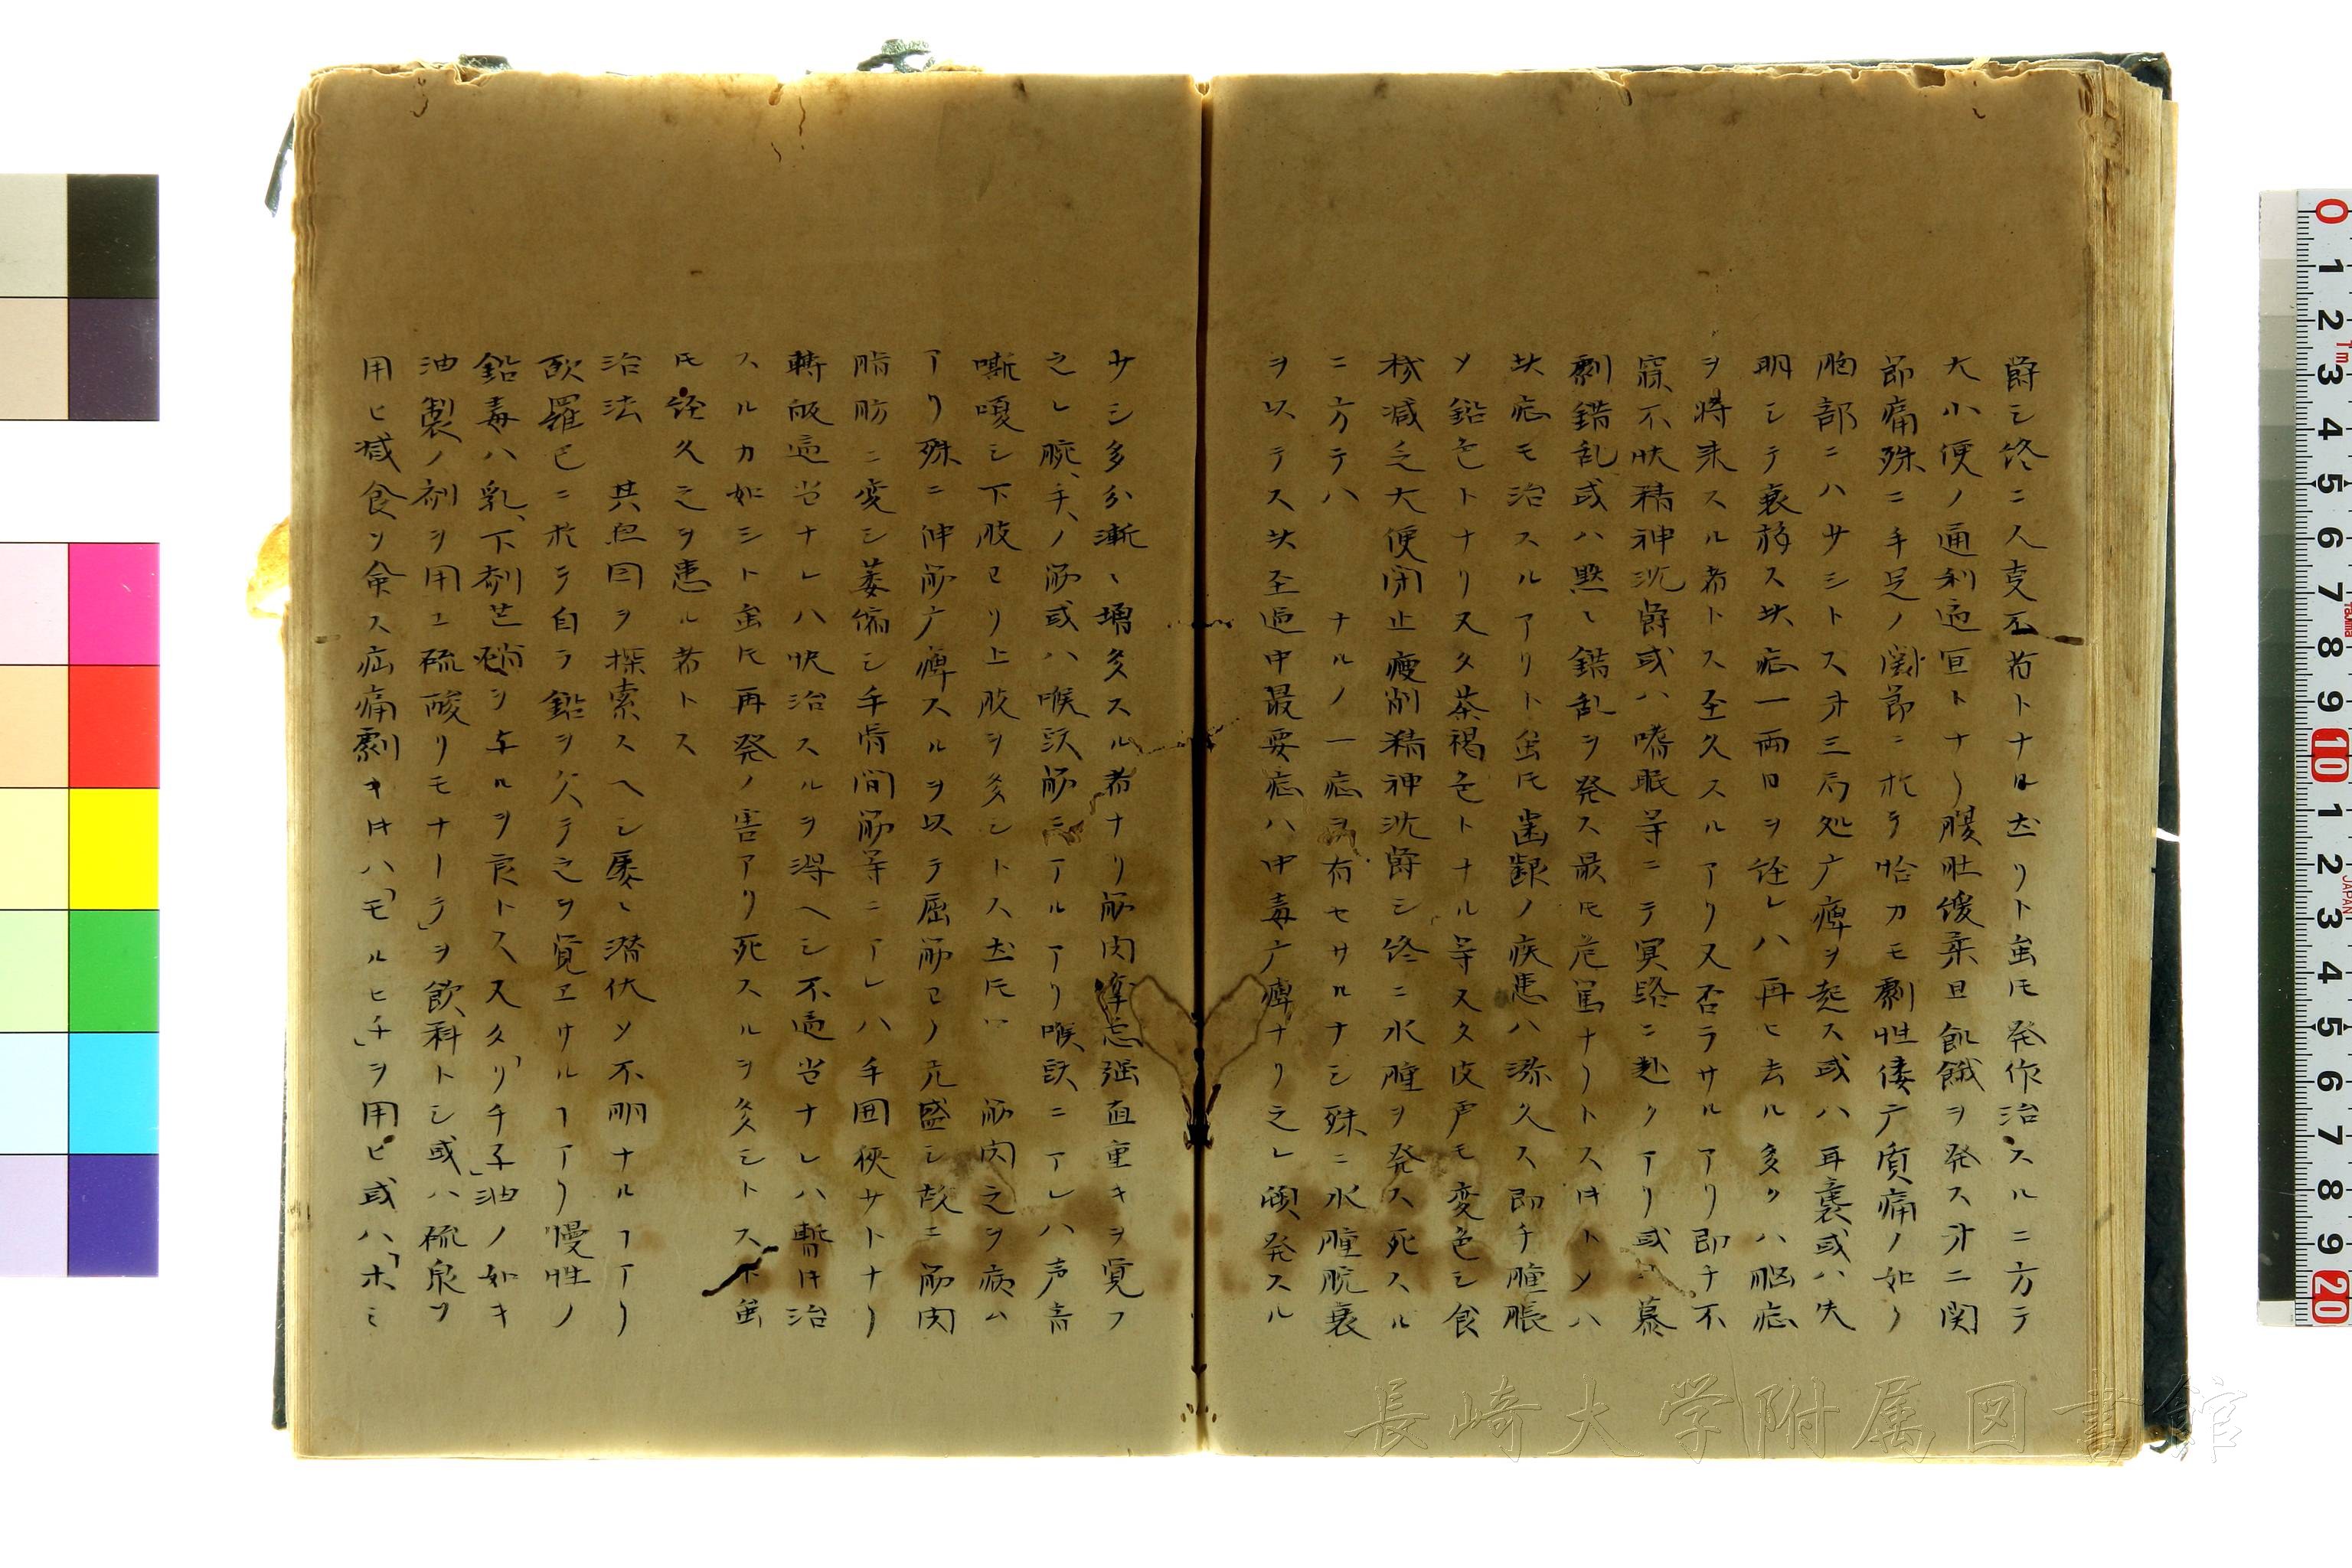 欝シ終ニ人支不省トナル尤リト虽𪜈発作治スルニ方テ
大小便ノ通利適宜トナリ腹肚緩柔且飢餓ヲ発ス㐧二関
節痛殊ニ手足ノ関節ニ於テ恰カモ劇性僂广質痛ノ如ク
胸部ニハサシトス㐧三局処广痺ヲ起ス或ハ耳聾或ハ失
明シテ衰移ス此症一両日ヲ経レハ再ヒ去ル多クハ脳症
ヲ将来スル者トス至久スルアリ又否ラサルアリ即チ不
寐不快精神沈欝或ハ嗜眠等ニテ冥路ニ赴クアリ或ハ暮
劇錯乱或ハ黙々錯乱ヲ発ス最𪜈危篤ナリトス時トメハ
此症モ治スルアリト虽𪜈歯齦ノ疾患ハ弥久ス即チ腫脹
メ鉛色トナリ又タ茶褐色トナル等又タ皮戸モ変色シ食
機減乏大便閉止瘦削精神沈欝シ終ニ水腫ヲ発ス死スル
ニ方テハ　ナルノ一症ヲ有セサルナシ殊ニ水腫脱衰
ヲ以テス此至過中最要症ハ中毒广痺ナリ之レ頻発スル
サシ多分漸々増多スル者ナリ筋肉攣急强直重キヲ覚フ
之レ腕、手、ノ筋或ハ喉頭筋ニアルアリ喉頭ニアレハ声音
嘶嗄シ下肢ヨリ上肢ヲ多シトス尤𪜈　筋肉之ヲ病ム
アリ殊ニ伸筋广痺スルヲ以テ屈筋ヨク亢盛シ故ニ筋肉
脂肪ニ変シ萎縮シ手骨間筋等ニアレハ手囲狹サトナリ
轉皈適当ナレハ快治スルヲ得ヘシ不適当ナレハ暫時治
スルカ如シト虽𪜈再発ノ害アリ死スルヲ多シトスト虽
𪜈経久之ヲ患ル者トス
治法　其原因ヲ探索スヘシ屡々潜伏メ不明ナルヿアリ
歐羅巴ニ於テ自ラ鉛ヲ欠テ之ヲ覚ヱサルヿアリ慢性ノ
鉛毒ハ乳、下剤芒硝ヲ与ルヲ良トス又タ「リチ子」油ノ如キ
油製ノ剤ヲ用ユ硫酸リモナーデ」ヲ飲料トシ或ハ硫泉ヲ
用ヒ減食ヲ命ス疝痛劇キ時ハ「モルヒ子」ヲ用ヒ或ハ「ホミ
長崎大学附属図書館